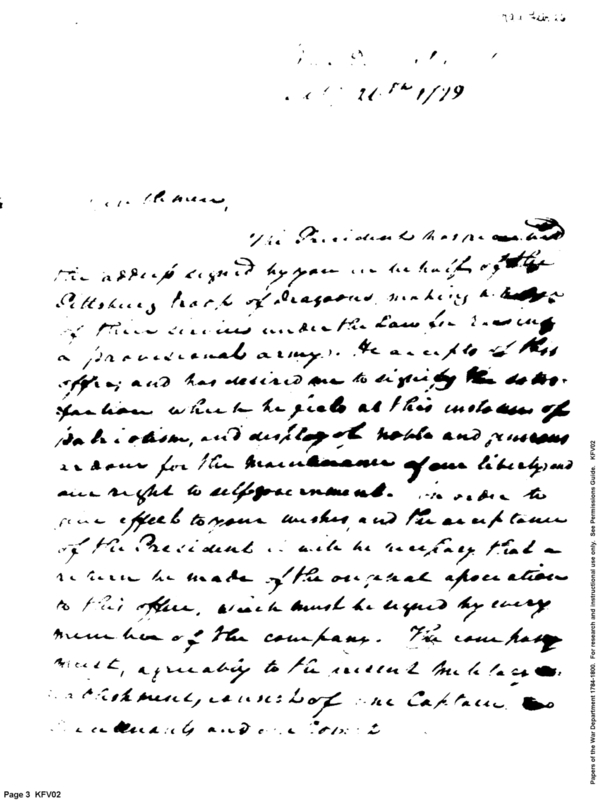 Feb 26
26th 1799
Gentlemen,
The President has received
the address signed by you in behalf of the
Pittsburg troop of dragoons, making a
of their services under the Law for raising
a provisional army. He accepts of this
offer; and has desired me to signify the satis-
faction which he feels at this instance of
patriotism, and display of noble and generous
ardour for the maintenance of our liberty and
our right to self government. In order to
give effect to your wishes, and the acceptance
of the President it will be necessary that a
return be made of the original association
to this office, which must be signed by every
member of the company. The company
must, agreeably to the present
establishment, consist of one Captain
Lieutenants and one Cornet
Page 3 KFV02
Papers of the War Department 1784-1800. For research and instructional use only. See Permissions Guide. KFV02